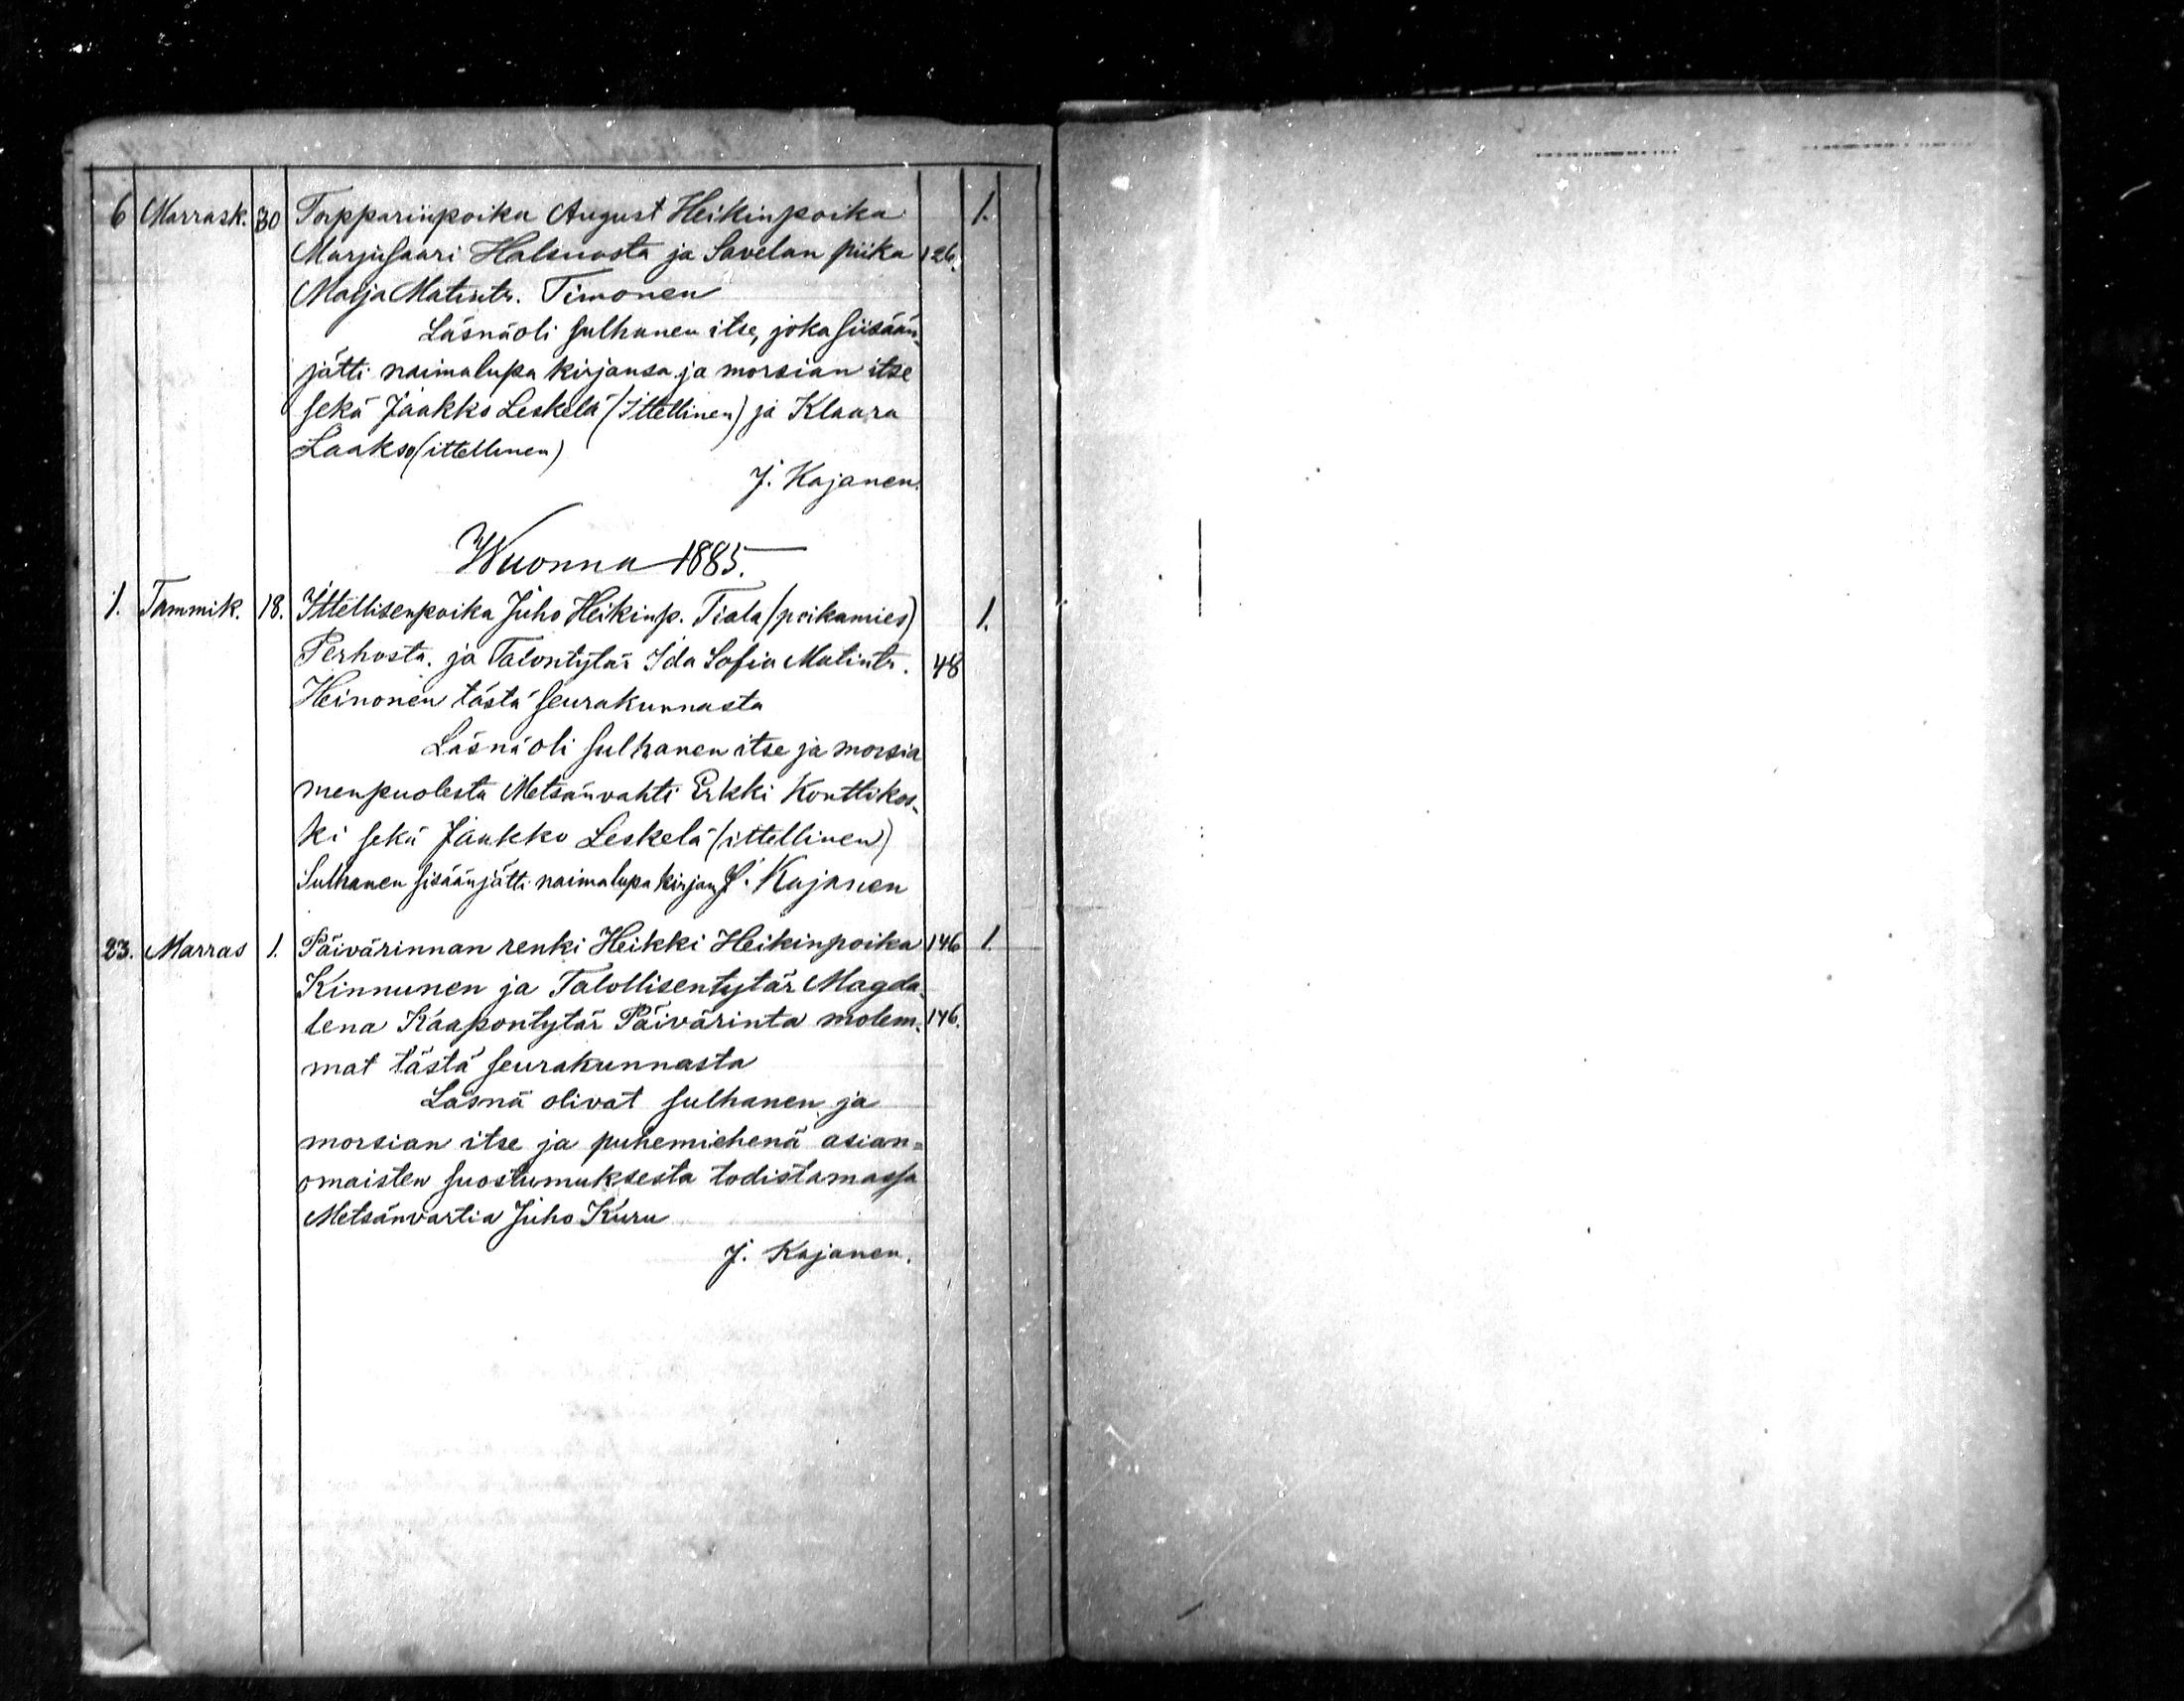 6 Marrask. 30 Torpparinpoika August Heikinpoika 1.
Marjusaari Halsuosta ja Savelan piika 126.
Maija Matintr. Timonen
Läsnäoli sulhanen itse, joka siisään
jätti naimalupa kirjansa ja morsian itse
sekä Jaakko Leskelä (Ittellinen) ja Klaara
Laakso (ittellinen)
J. Kajanen.
Wuonna 1885.
1. Tammik. 18. Ittellisenpoika Juho Heikinp. Tiala (poikamies) 1.
Perhosta. ja Talontytär Ida Sofia Matintr. 48
Heinonen tästä seurakunnasta
Läsnäoli sulhanen itse ja morsia
menpuolesta Metsänvahti Erkki Konttikos-
ki sekä Jaakko Leskelä (ittellinen)
Sulhanen sisäänjätti naimalupa kirjan J. Kajanen
23. Marras 1. Päivärinnan renki Heikki Heikinpoika 146 1.
Kinnunen ja Talollisentytär Magda-
lena Kaapontytär Päivärinta molem- 146.
mat tästä seurakunnasta
Läsnä olivat sulhanen ja
morsian itse ja puhemiehenä asian=
omaisten suostumuksesta todistamassa
Metsänvartia Juho Kuru
J. Kajanen.